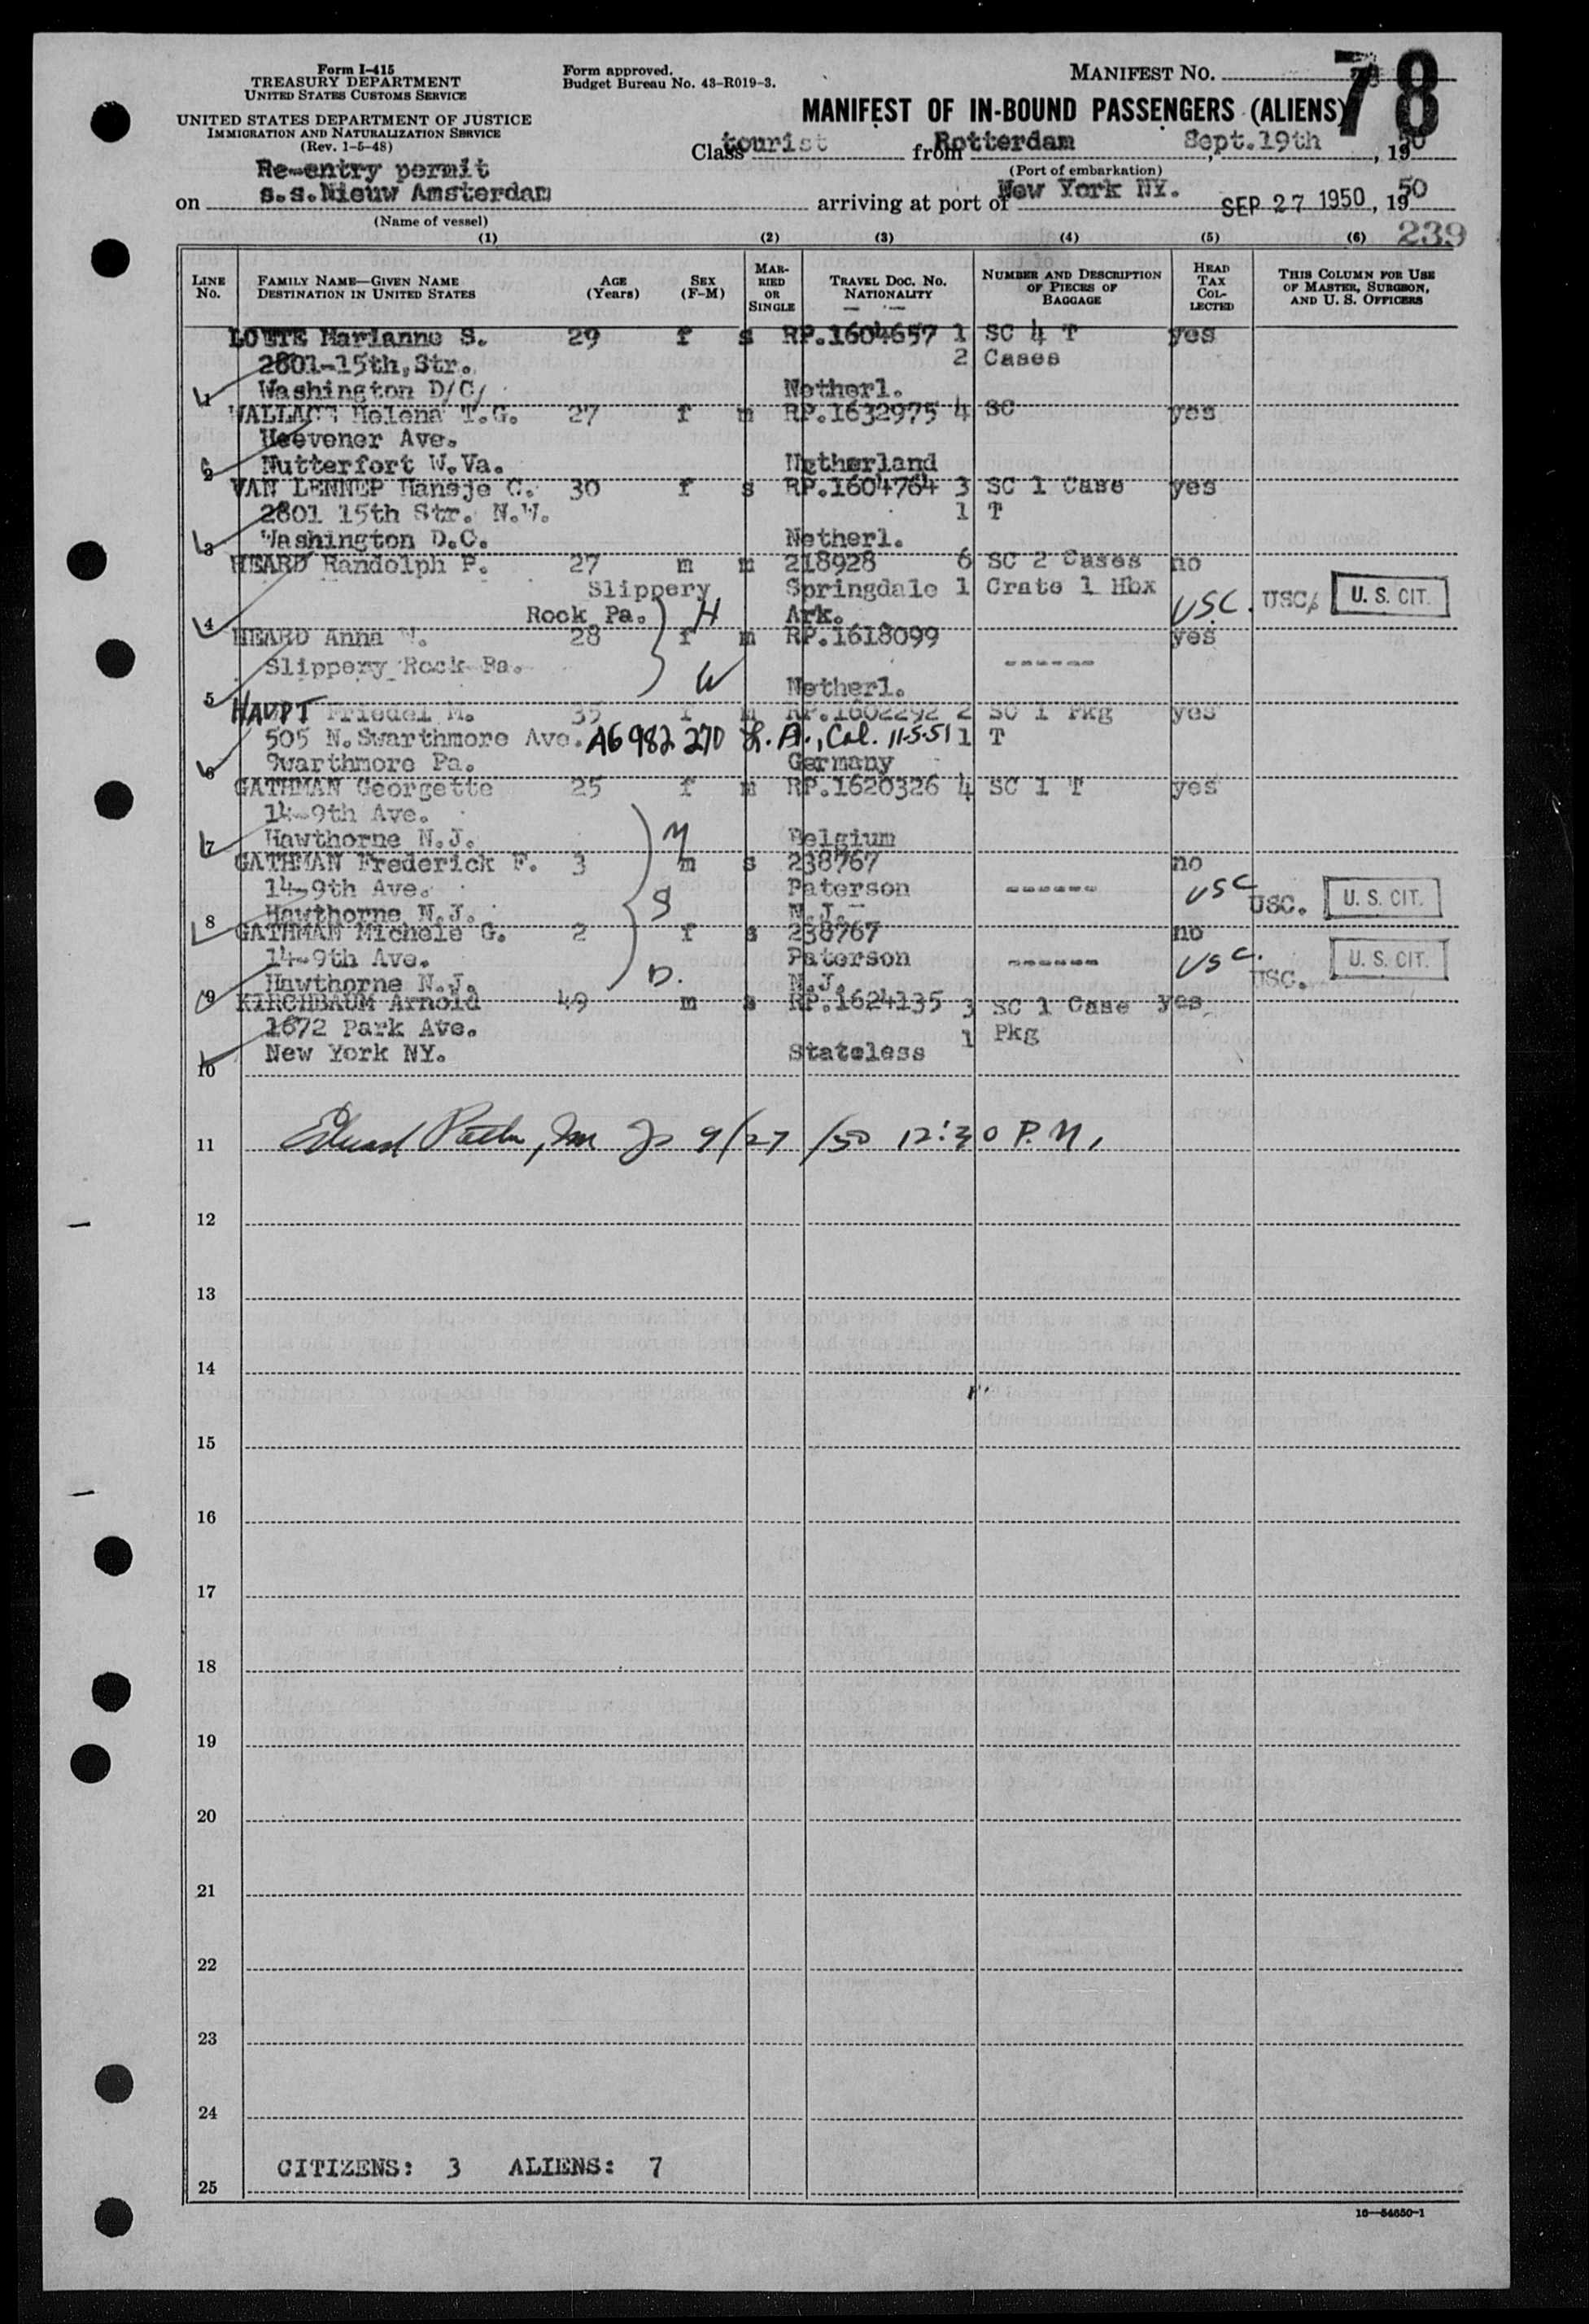 Form I-415
TREASURY DEPARTMENT
UNITED STATES CUSTOMS SERVICE
UNITED STATES DEPARTMENT OF JUSTICE
IMMIGRATION AND NATURALIZATION SERVICE
(Rev. 1-5-48)
Form approved.
Budget Bureau No. 43-R019-3.
MANIFEST NO. 78
MANIFEST OF IN-BOUND PASSENGERS (ALIENS)
Class tourist from Rotterdam Sept.19th, 1950
(Port of embarkation)
Re-entry permit
on s.s.Nieuw Amsterdam arriving at port of New York NY. SEP 27 1950, 1950
(Name of vessel)
(1) (2) (3) (4) (5) (6) 239
LINE No. FAMILY NAME—GIVEN NAME DESTINATION IN UNITED STATES AGE (Years) SEX (F-M) MARRIED OR SINGLE TRAVEL DOC. NO. NATIONALITY NUMBER AND DESCRIPTION OF PIECES OF BAGGAGE HEAD TAX COLLECTED THIS COLUMN FOR USE OF MASTER, SURGEON, AND U. S. OFFICERS
Marianne S. 29 f s RP.1604657 1 SC 4 T yes
2801-15th,Str. 2 Cases
1 Washington D/C/ Netherl.
WALLACE Helena T.G. 27 f m RP.1632975 4 SC yes
Heevener Ave.
2 Nutterfort W.Va. Netherland
VAN LENNEP Hansje C. 30 f s RP.1604764 3 SC 1 Case yes
2801 15th Str. N.W. 1 T
3 Washington D.C. Netherl.
HEARD Randolph P. 27 m m 218928 6 SC 2 Cases no
Slippery Springdale 1 Crate 1 Hbx USC. USC. U. S. CIT.
4 Rock Pa. H Ark.
HEARD Anna 28 f m RP.1618099 yes
Slippery Rock Pa. ------
5 W Netherl.
HAUPT Friedel M. 35 f m RP.1602292 2 SC 1 Pkg yes
505 N.Swarthmore Ave. A6 982 270 L.A., Cal. 11-5-51 1 T
6 Swarthmore Pa. Germany
GATHMAN Georgette 25 f m RP.1620326 4 SC 1 T yes
14-9th Ave.
7 Hawthorne N.J. M Belgium
GATHMAN Frederick F. 3 m s 238767 no
14-9th Ave. Paterson ------ USC USC. U. S. CIT.
8 Hawthorne N.J. S N.J.
GATHMAN Michele G. 2 f s 238767 no
14-9th Ave. Paterson ------ USC. USC. U. S. CIT.
9 Hawthorne N.J. D. N.J.
KIRCHBAUM Arnold 49 m s RP.1624135 3 SC 1 Case yes
1672 Park Ave. 1 Pkg
10 New York NY. Stateless
11 9/27/50 12:30 P.M.
12
13
14
15
16
17
18
19
20
21
22
23
24
CITIZENS: 3 ALIENS: 7
25
16—54650-1